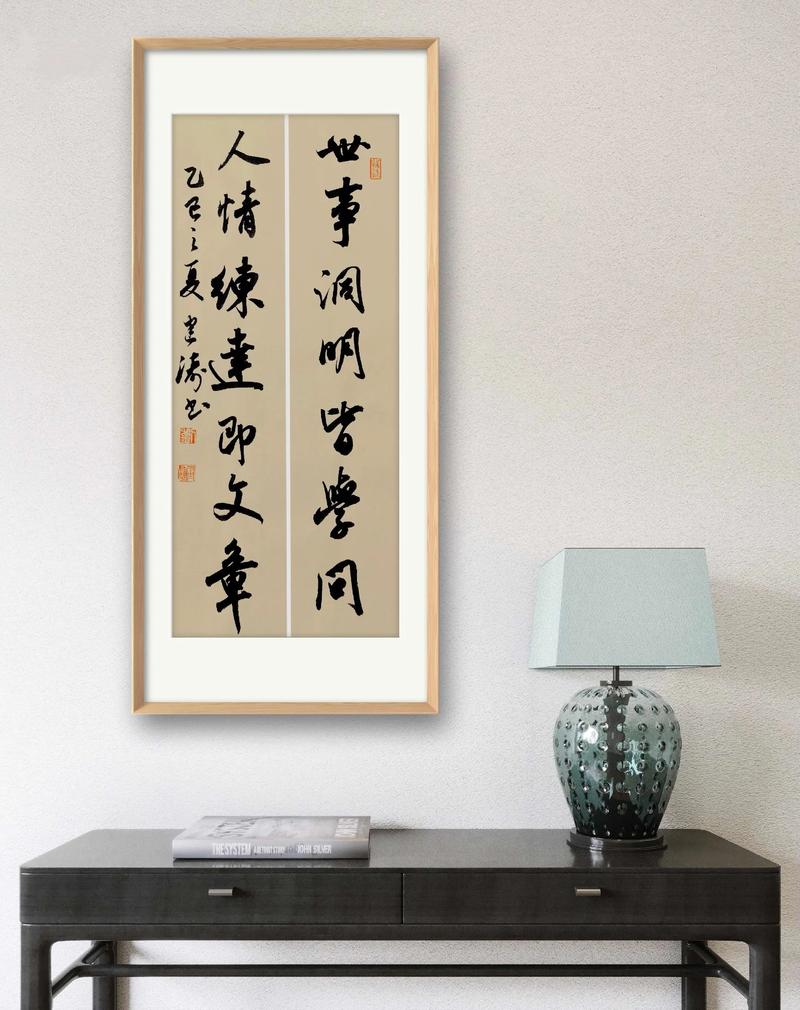 世事洞明皆學问
人情練達即文章
乙巳之夏建濤书
THE SYSTEM A DETROIT STORY JOHN SILVER